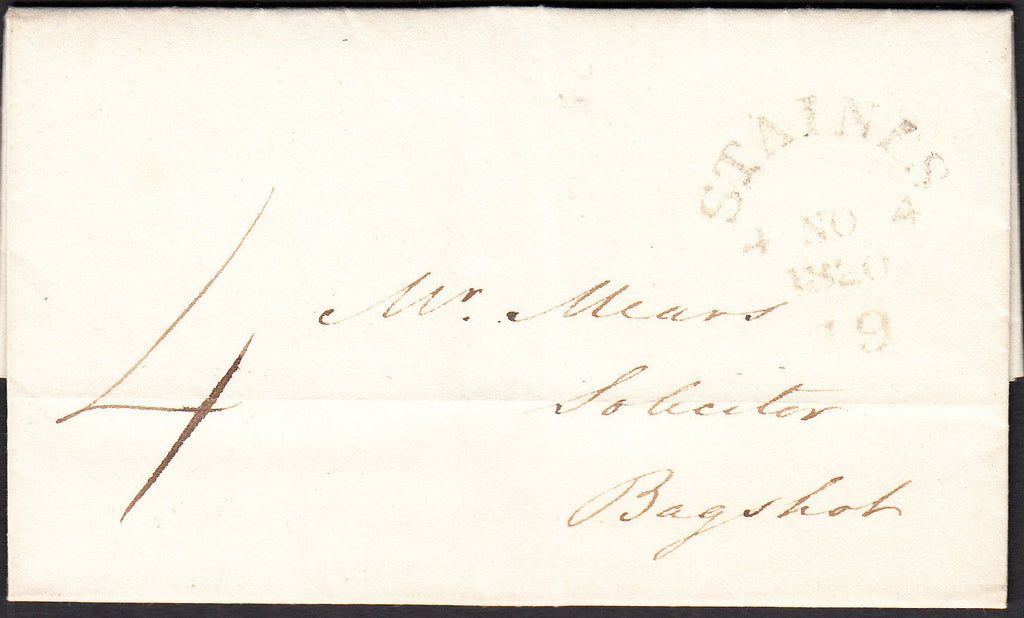 STAINES
NO
1820
19
4
Mr. Mears
Solicitor
Bagshot